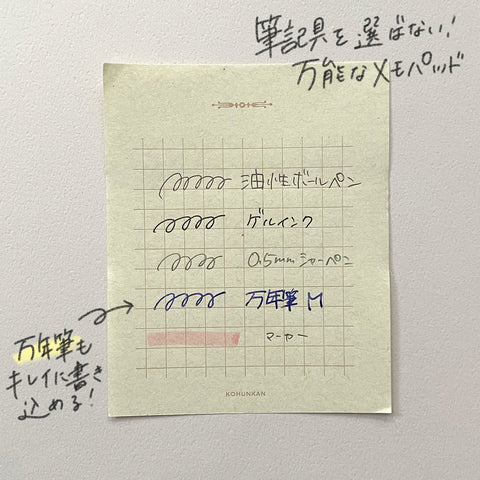 筆記具を選ばない!
万能なメモパッド
油性ボールペン
ゲルインク
0.5mmシャーペン
万年筆 M
マーカー
万年筆も
キレイに書き
込める!
KOHUNKAN